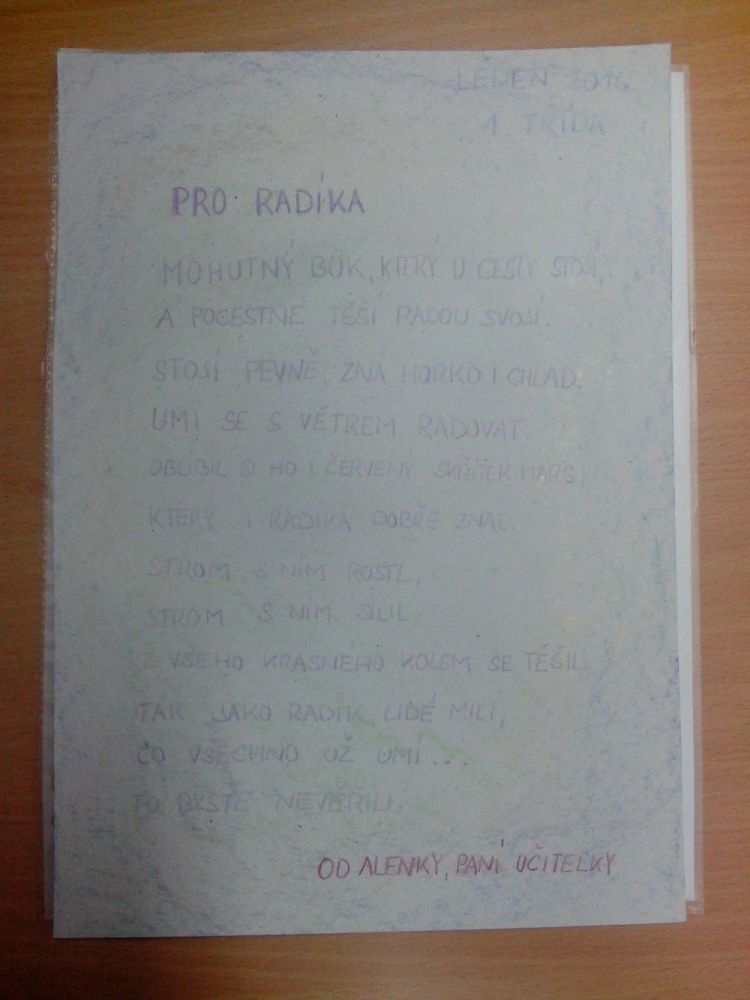 LEDEN 2014
1. TŘÍDA
PRO RADÍKA
MOHUTNÝ BUK, KTERÝ U CESTY STOJÍ,
A POCESTNÉ TĚŠÍ RADOU SVOJÍ.
STOJÍ PEVNĚ, ZNÁ HORKO I CHLAD.
UMÍ SE S VĚTREM RADOVAT.
OBLÍBIL SI HO I ČERVENÝ SKŘÍTEK MARS,
KTERÝ I RADÍKA DOBŘE ZNAL.
STROM S NÍM ROSTL,
STROM S NÍM SÍLIL
Z VŠEHO KRÁSNÉHO KOLEM SE TĚŠIL.
TAK JAKO RADÍK, LIDÉ MILÍ,
CO VŠECHNO UŽ UMÍ...
TO BYSTE NEVĚŘILI.
OD ALENKY, PANÍ UČITELKY